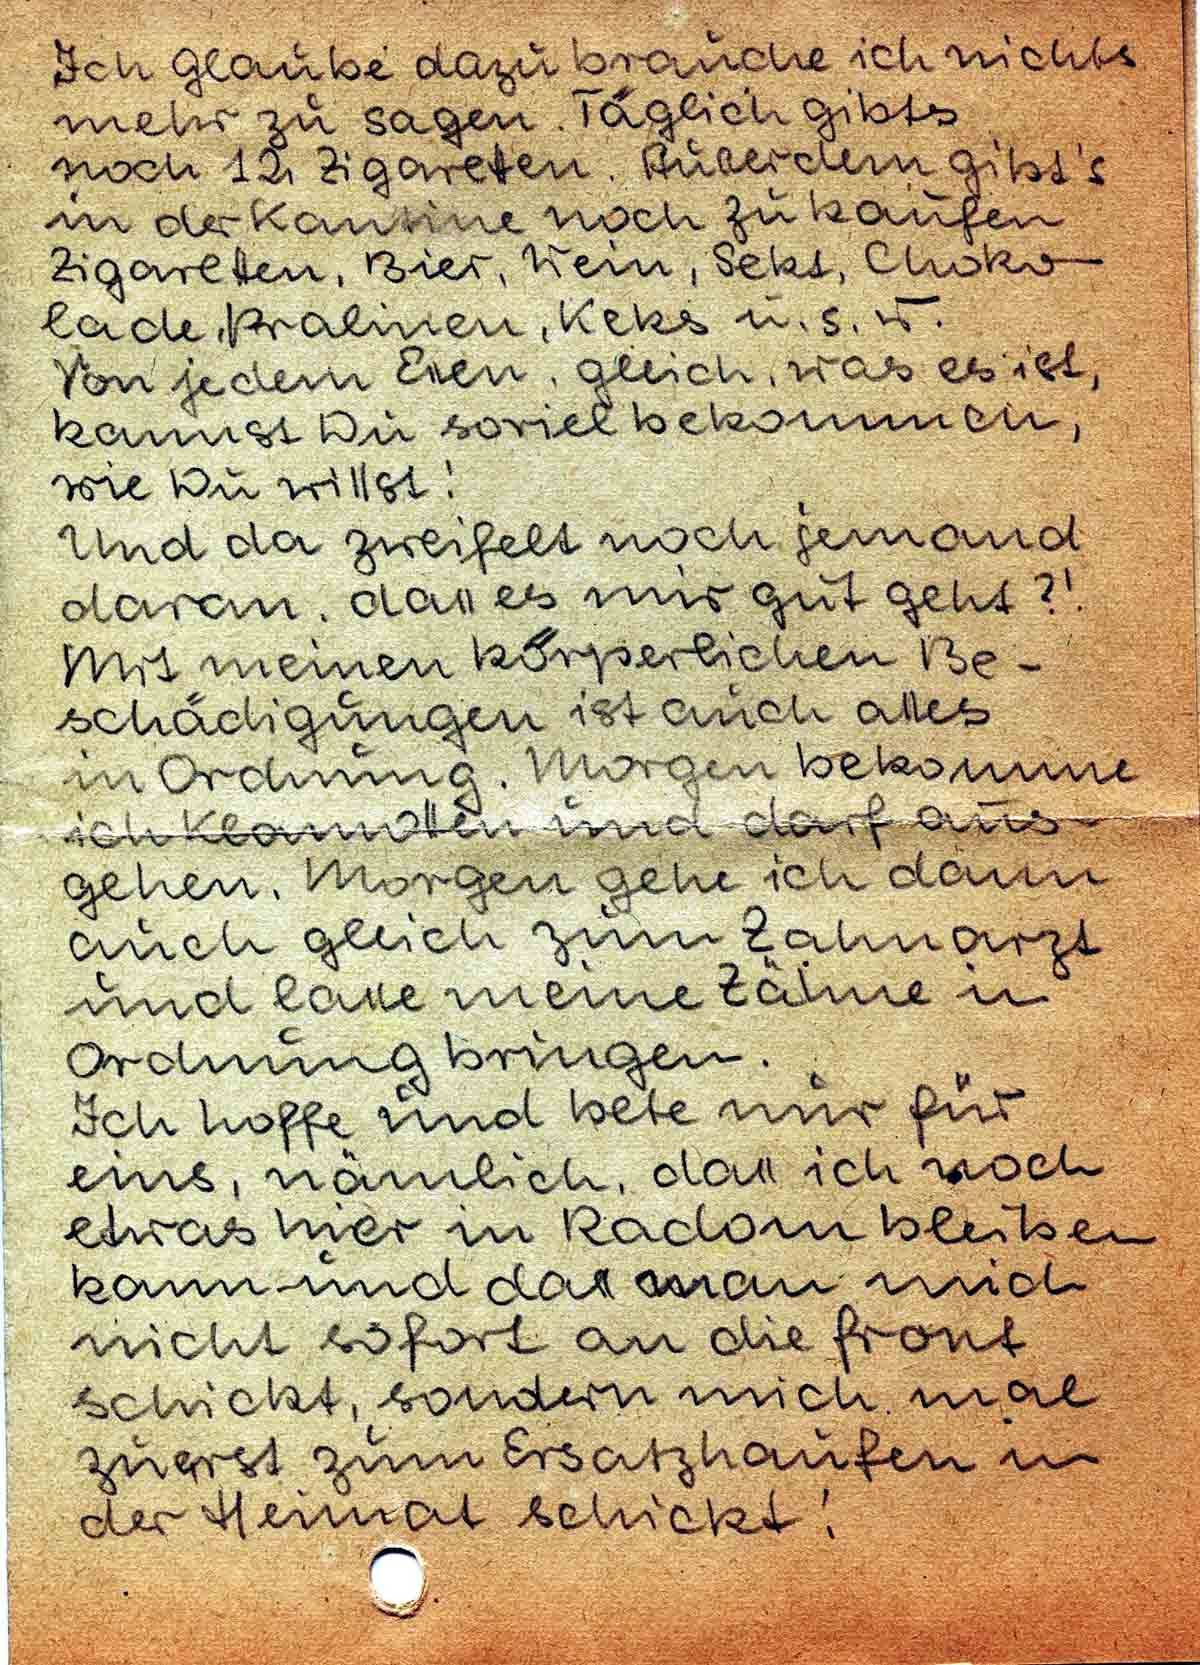 Ich glaube dazu brauche ich nichts
mehr zu sagen. Täglich gibts
noch 12 Zigaretten. Außerdem gibt's
in der Kantine noch zu kaufen
Zigaretten, Bier, Wein, Sekt, Choko-
lade, Pralinen, Keks u.s.w.
Von jedem Essen, gleich, was es ist,
kannst Du soviel bekommen,
wie Du willst!
Und da zweifelt noch jemand
daran, dass es mir gut geht?!
Mit meinen körperlichen Be-
schädigungen ist auch alles
in Ordnung. Morgen bekomme
ich Klamotten und darf aus-
gehen. Morgen gehe ich dann
auch gleich zum Zahnarzt
und lasse meine Zähne in
Ordnung bringen.
Ich hoffe und bete nur für
eins, nämlich, dass ich noch
etwas hier in Radom bleiben
kann und dass man mich
nicht sofort an die Front
schickt, sondern mich mal
zuerst zum Ersatzhaufen in
der Heimat schickt!